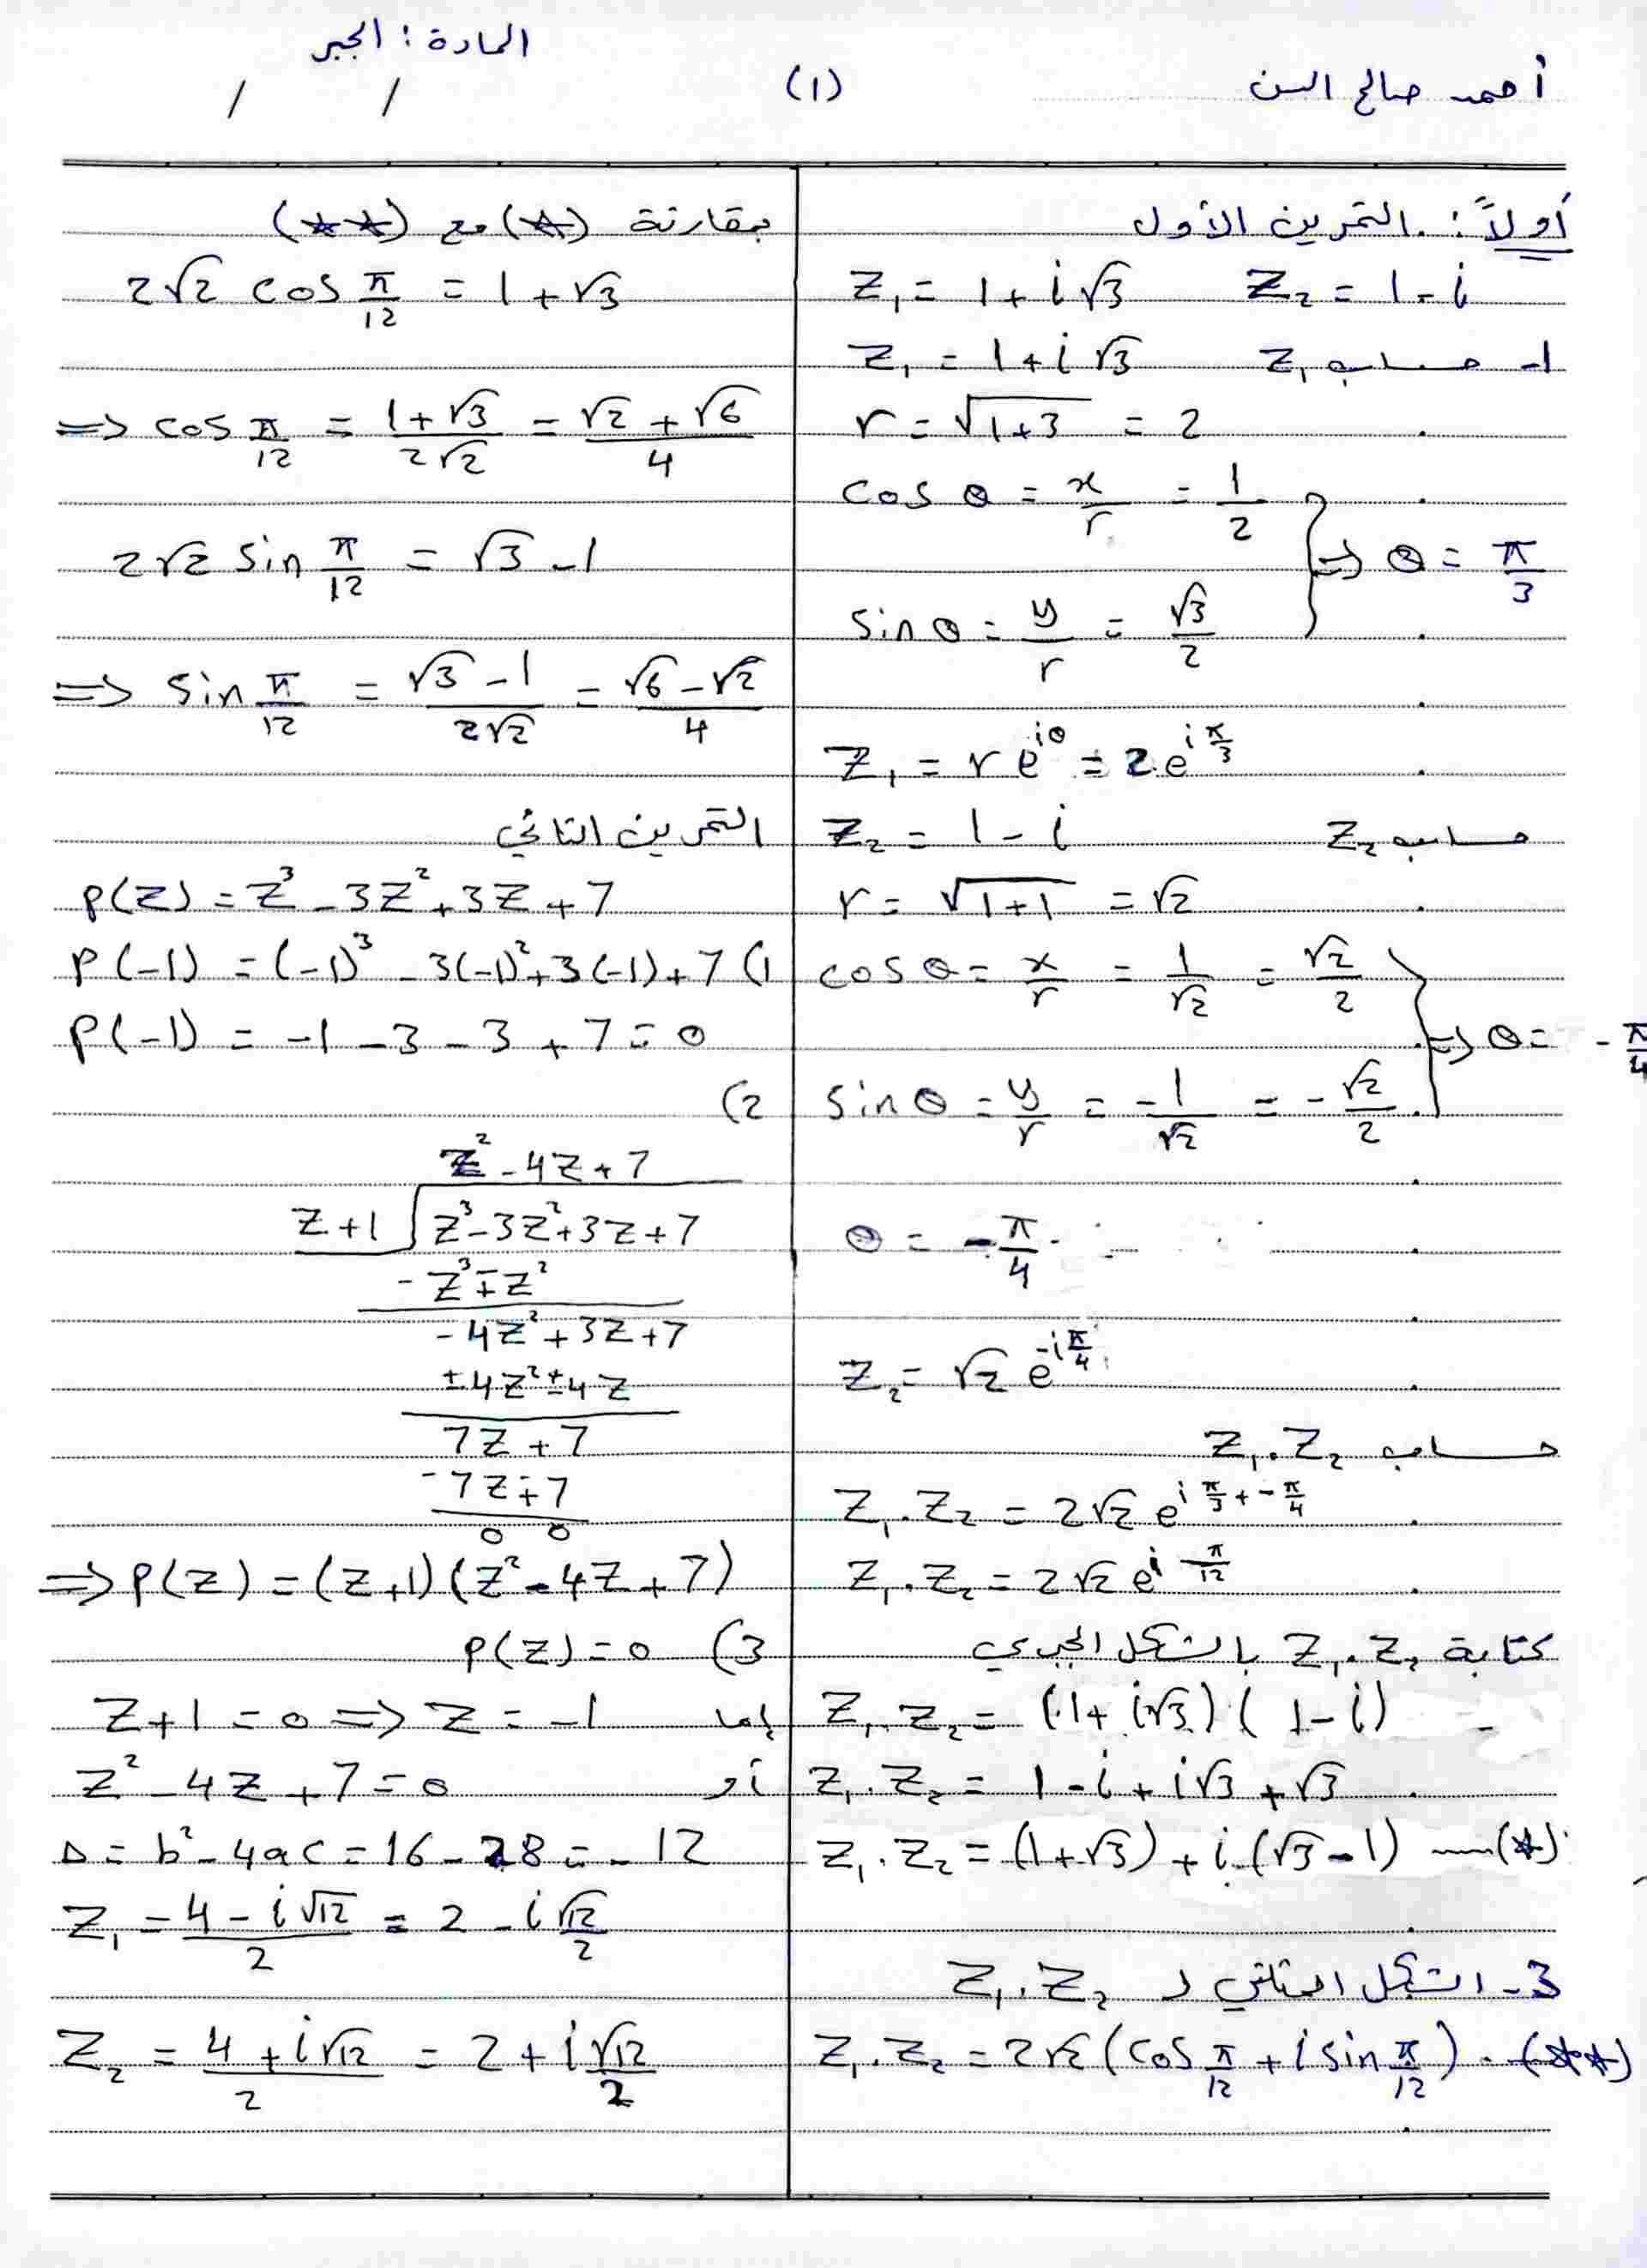 المادة: الجبر
/ /
(1)
أحمد صالح السن
أولاً: التمرين الأول
Z₁ = 1 + i√3 Z₂ = 1 - i
1- حساب Z₁ Z₁ = 1 + i√3
r = √(1+3) = 2
cos θ = x/r = 1/2
⇒ θ = π/3
sin θ = y/r = √3/2
Z₁ = r e^(iθ) = 2 e^(i π/3)
حساب Z₂ Z₂ = 1 - i
r = √(1+1) = √2
cos θ = x/r = 1/√2 = √2/2
⇒ θ = -π/4
sin θ = y/r = -1/√2 = -√2/2
θ = -π/4
Z₂ = √2 e^(-i π/4)
حساب Z₁.Z₂
Z₁.Z₂ = 2√2 e^(i π/3 + -π/4)
Z₁.Z₂ = 2√2 e^(i π/12)
كتابة Z₁.Z₂ بالشكل الجبري
Z₁.Z₂ = (1 + i√3)(1 - i)
Z₁.Z₂ = 1 - i + i√3 + √3
Z₁.Z₂ = (1+√3) + i(√3-1) (*)
3- الشكل المثلثي لـ Z₁.Z₂
Z₁.Z₂ = 2√2 (cos π/12 + i sin π/12) (**)
بمقارنة (*) مع (**)
2√2 cos π/12 = 1 + √3
⇒ cos π/12 = (1+√3)/(2√2) = (√2+√6)/4
2√2 sin π/12 = √3 - 1
⇒ sin π/12 = (√3-1)/(2√2) = (√6-√2)/4
التمرين الثاني
P(Z) = Z³ - 3Z² + 3Z + 7
1) P(-1) = (-1)³ - 3(-1)² + 3(-1) + 7
P(-1) = -1 - 3 - 3 + 7 = 0
2)
Z² - 4Z + 7
Z+1 Z³ - 3Z² + 3Z + 7
-Z³ ∓ Z²
-4Z² + 3Z + 7
±4Z² ± 4Z
7Z + 7
-7Z ∓ 7
0 0
⇒ P(Z) = (Z+1)(Z² - 4Z + 7)
3) P(Z) = 0
إما Z + 1 = 0 ⇒ Z = -1
أو Z² - 4Z + 7 = 0
Δ = b² - 4ac = 16 - 28 = -12
Z₁ = (4 - i√12)/2 = 2 - i √12/2
Z₂ = (4 + i√12)/2 = 2 + i √12/2